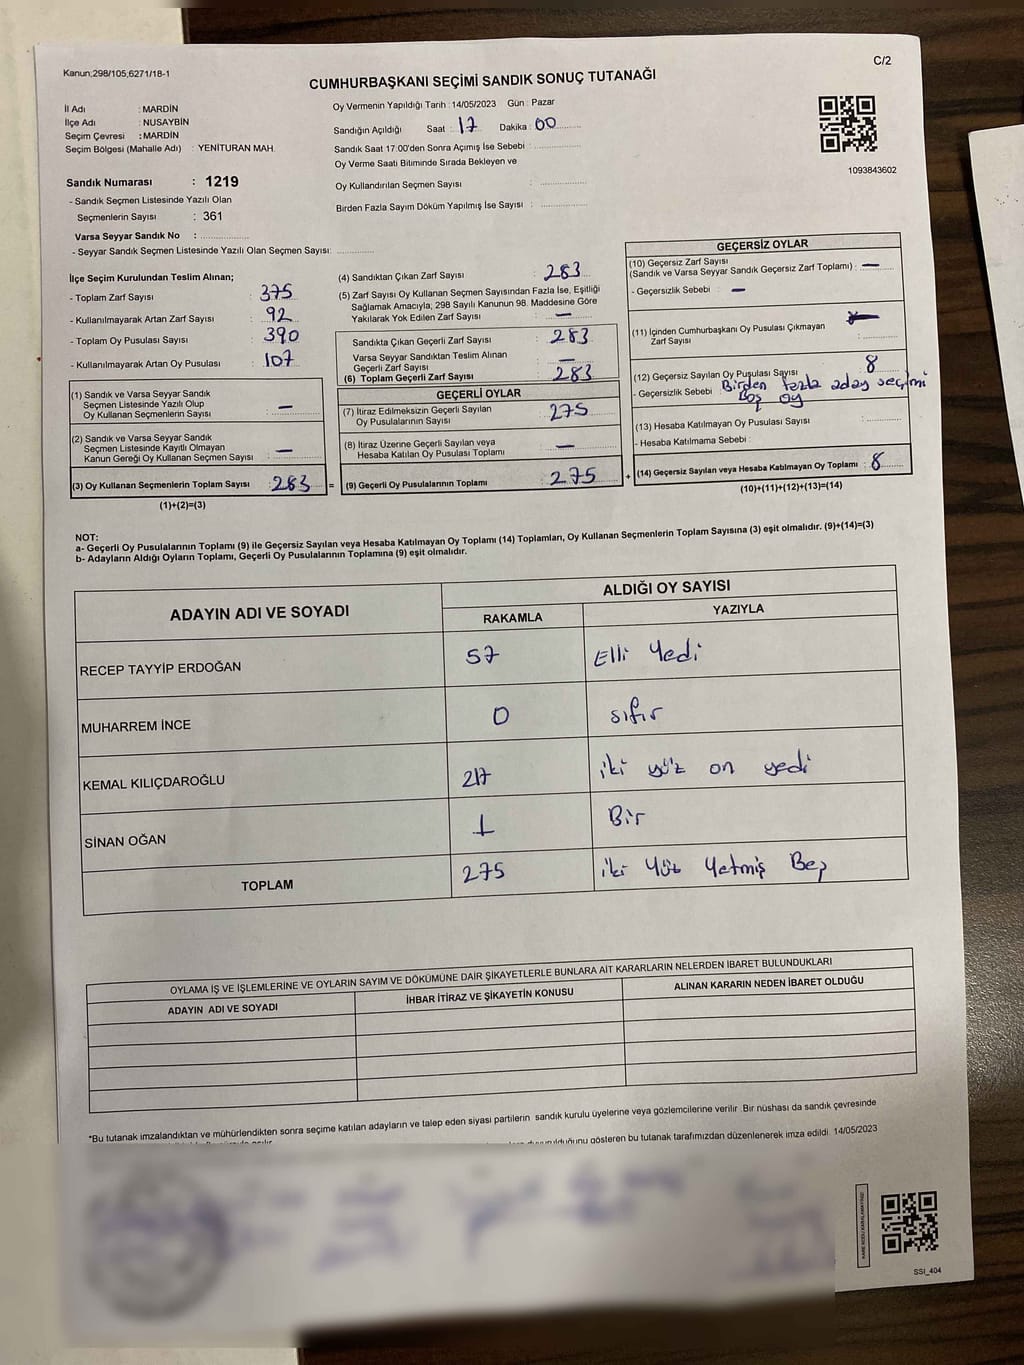 Kanun;298/105,6271/18-1
C/2
CUMHURBAŞKANI SEÇİMİ SANDIK SONUÇ TUTANAĞI
İl Adı : MARDİN
İlçe Adı : NUSAYBİN
Seçim Çevresi : MARDİN
Seçim Bölgesi (Mahalle Adı) : YENİTURAN MAH.
Oy Vermenin Yapıldığı Tarih : 14/05/2023 Gün : Pazar
Sandığın Açıldığı Saat : 17 Dakika : 00
Sandık Saat 17:00'den Sonra Açımış İse Sebebi :
Oy Verme Saati Bitiminde Sırada Bekleyen ve
Oy Kullandırılan Seçmen Sayısı :
Birden Fazla Sayım Döküm Yapılmış İse Sayısı :
1093843602
Sandık Numarası : 1219
- Sandık Seçmen Listesinde Yazılı Olan
Seçmenlerin Sayısı : 361
Varsa Seyyar Sandık No :
- Seyyar Sandık Seçmen Listesinde Yazılı Olan Seçmen Sayısı:
İlçe Seçim Kurulundan Teslim Alınan;
- Toplam Zarf Sayısı : 375
- Kullanılmayarak Artan Zarf Sayısı : 92
- Toplam Oy Pusulası Sayısı : 390
- Kullanılmayarak Artan Oy Pusulası : 107
(1) Sandık ve Varsa Seyyar Sandık
Seçmen Listesinde Yazılı Olup
Oy Kullanan Seçmenlerin Sayısı : —
(2) Sandık ve Varsa Seyyar Sandık
Seçmen Listesinde Kayıtlı Olmayan
Kanun Gereği Oy Kullanan Seçmen Sayısı : —
(3) Oy Kullanan Seçmenlerin Toplam Sayısı : 283 =
(1)+(2)=(3)
(4) Sandıktan Çıkan Zarf Sayısı : 283
(5) Zarf Sayısı Oy Kullanan Seçmen Sayısından Fazla İse, Eşitliği
Sağlamak Amacıyla; 298 Sayılı Kanunun 98. Maddesine Göre
Yakılarak Yok Edilen Zarf Sayısı : —
Sandıkta Çıkan Geçerli Zarf Sayısı : 283
Varsa Seyyar Sandıktan Teslim Alınan
Geçerli Zarf Sayısı : —
(6) Toplam Geçerli Zarf Sayısı : 283
GEÇERLİ OYLAR
(7) İtiraz Edilmeksizin Geçerli Sayılan
Oy Pusulalarının Sayısı : 275
(8) İtiraz Üzerine Geçerli Sayılan veya
Hesaba Katılan Oy Pusulası Toplamı : —
(9) Geçerli Oy Pusulalarının Toplamı : 275 +
GEÇERSİZ OYLAR
(10) Geçersiz Zarf Sayısı
(Sandık ve Varsa Seyyar Sandık Geçersiz Zarf Toplamı) : —
- Geçersizlik Sebebi : —
(11) İçinden Cumhurbaşkanı Oy Pusulası Çıkmayan
Zarf Sayısı : —
(12) Geçersiz Sayılan Oy Pusulası Sayısı : 8
- Geçersizlik Sebebi : Birden fazla aday seçimi
Boş oy
(13) Hesaba Katılmayan Oy Pusulası Sayısı :
- Hesaba Katılmama Sebebi :
(14) Geçersiz Sayılan veya Hesaba Katılmayan Oy Toplamı : 8
(10)+(11)+(12)+(13)=(14)
NOT:
a- Geçerli Oy Pusulalarının Toplamı (9) ile Geçersiz Sayılan veya Hesaba Katılmayan Oy Toplamı (14) Toplamları, Oy Kullanan Seçmenlerin Toplam Sayısına (3) eşit olmalıdır. (9)+(14)=(3)
b- Adayların Aldığı Oyların Toplamı, Geçerli Oy Pusulalarının Toplamına (9) eşit olmalıdır.
ADAYIN ADI VE SOYADI
ALDIĞI OY SAYISI
RAKAMLA YAZIYLA
RECEP TAYYİP ERDOĞAN 57 Elli Yedi
MUHARREM İNCE 0 sıfır
KEMAL KILIÇDAROĞLU 217 iki yüz on yedi
SİNAN OĞAN 1 Bir
TOPLAM 275 iki Yüz Yetmiş Beş
OYLAMA İŞ VE İŞLEMLERİNE VE OYLARIN SAYIM VE DÖKÜMÜNE DAİR ŞİKAYETLERLE BUNLARA AİT KARARLARIN NELERDEN İBARET BULUNDUKLARI
ADAYIN ADI VE SOYADI İHBAR İTİRAZ VE ŞİKAYETİN KONUSU ALINAN KARARIN NEDEN İBARET OLDUĞU
*Bu tutanak imzalandıktan ve mühürlendikten sonra seçime katılan adayların ve talep eden siyasi partilerin sandık kurulu üyelerine veya gözlemcilerine verilir .Bir nüshası da sandık çevresinde
gösteren bu tutanak tarafımızdan düzenlenerek imza edildi. 14/05/2023
KARE KODU KARALAMAYINIZ!
SSI_404